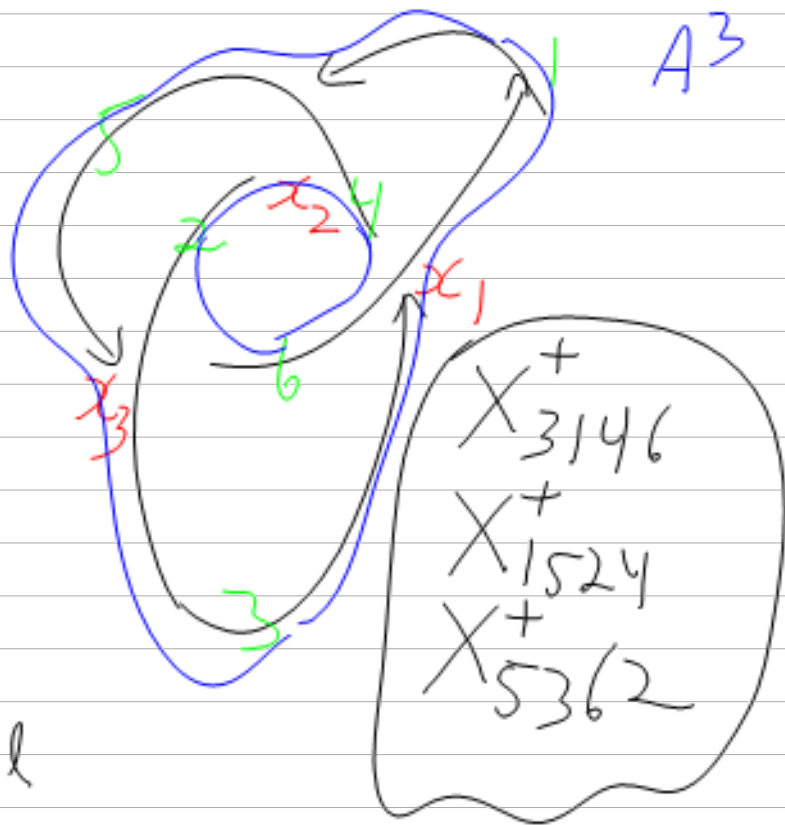 A³
1
5
x₂
4
2
x₁
6
x₃
X⁺₃₁₄₆
X⁺₁₅₂₄
3
X⁺₅₃₆₂
l